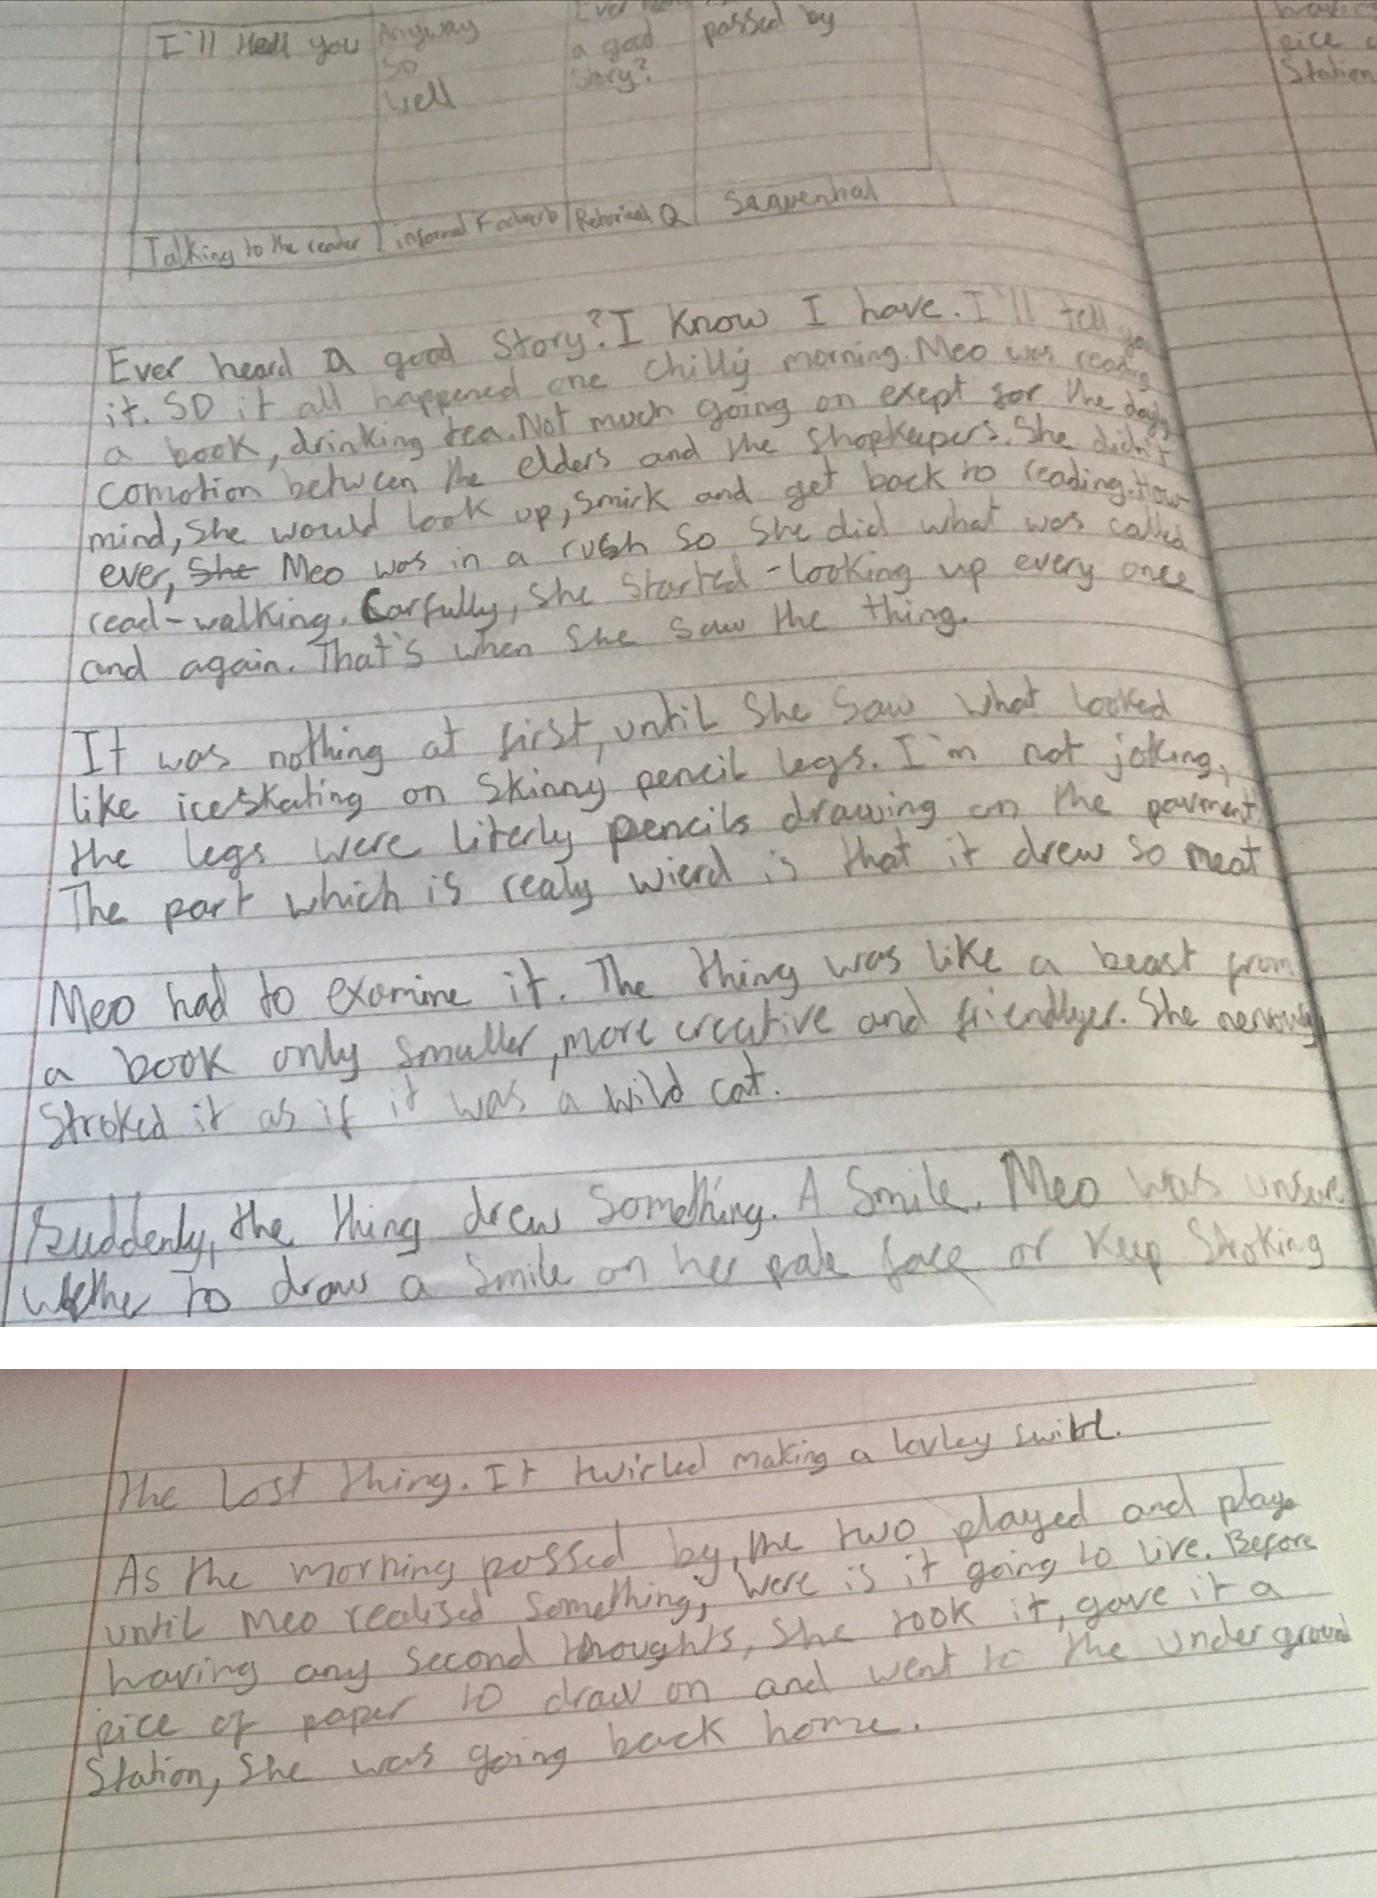 I'll tell you
Anyway
So
Well
a good
story?
passed by
Talking to the reader
informal F adverb
Retorical Q
Sequential
pice o
Station
Ever heard a good Story? I know I have. I'll tell you
it. So it all happened one chilly morning. Meo was reading
a book, drinking tea. Not much going on exept for the daily
comotion between the elders and the shopkeepers. She didn't
mind, she would look up, smirk and get back to reading. How
ever, She Meo was in a rush so she did what was called
read-walking. Carfully, she started - looking up every once
and again. That's when she saw the thing.
It was nothing at first, until she saw what looked
like iceskating on skinny pencil legs. I'm not joking,
the legs were literly pencils drawing on the pavment.
The part which is realy wierd is that it drew so neat
Meo had to examine it. The thing was like a beast from
a book only smaller, more creative and friendlyer. She nervously
stroked it as if it was a wild cat.
Suddenly, the thing drew something. A smile. Meo was unsure
whether to draw a smile on her pale face or keep stroking
the lost thing. It twirled making a lovley swirl.
As the morning passed by, the two played and played
until Meo realised something; were is it going to live. Before
having any second thoughts, she took it, gave it a
pice of paper to draw on and went to the underground
Station, she was going back home.